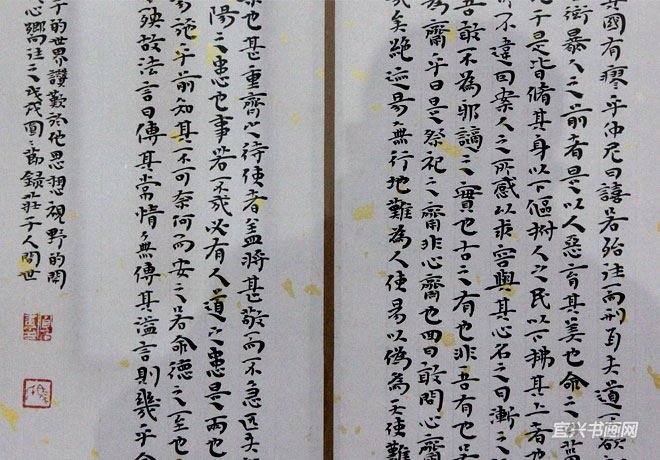 其國有瘳乎仲尼曰譆若殆往而刑耳夫道不欲
術暴人之前者是以人惡育其美也命之曰菑
于是皆脩其身以下傴拊人之民以下拂其上者也
而不違因案人之所感以求容與其心名之曰漸之
吾敢不為邪謫之實也古之有也非吾有也
為齋乎曰是祭祀之齋非心齋也回曰敢問心齋
矣絕迹易無行地難為人使易以偽為天使難
也甚重齊之待使者蓋將甚敬而不急匹夫
陽之患也事若不成必有人道之患是兩也
易施乎前知其不可奈何而安之若命德之至也
殃故法言曰傳其常情無傳其溢言則幾乎全
子的世界讚歎於他思想視野的開
心嚮往之戊戌圓圓節錄莊子人間世
宜兴书画网